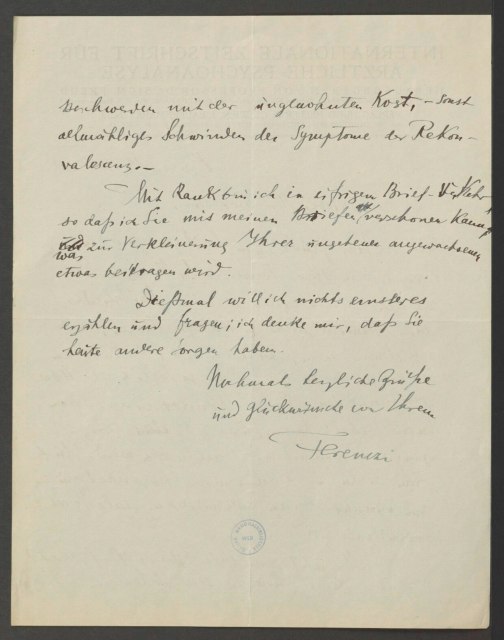 schwerden mit der ungewohnten Kost, – sonst
allmähliges Schwinden der Symptome der Rekon-
valeszenz. –
Mit Rank bin ich in eifrigem Brief-Verkehr
so daß ich Sie mit meinen Briefen verschonen kann,
was zur Verkleinerung Ihrer ungeheuer angewachsenen
etwas beitragen wird.
Dießmal will ich nichts ernsteres
erzählen und fragen; ich denke mir, daß Sie
heute andere Sorgen haben.
Nochmals herzliche Grüße
und Glückwünsche von Ihrem
Ferenczi
INTERNATIONALE ZEITSCHRIFT FÜR
ÄRZTLICHE PSYCHOANALYSE